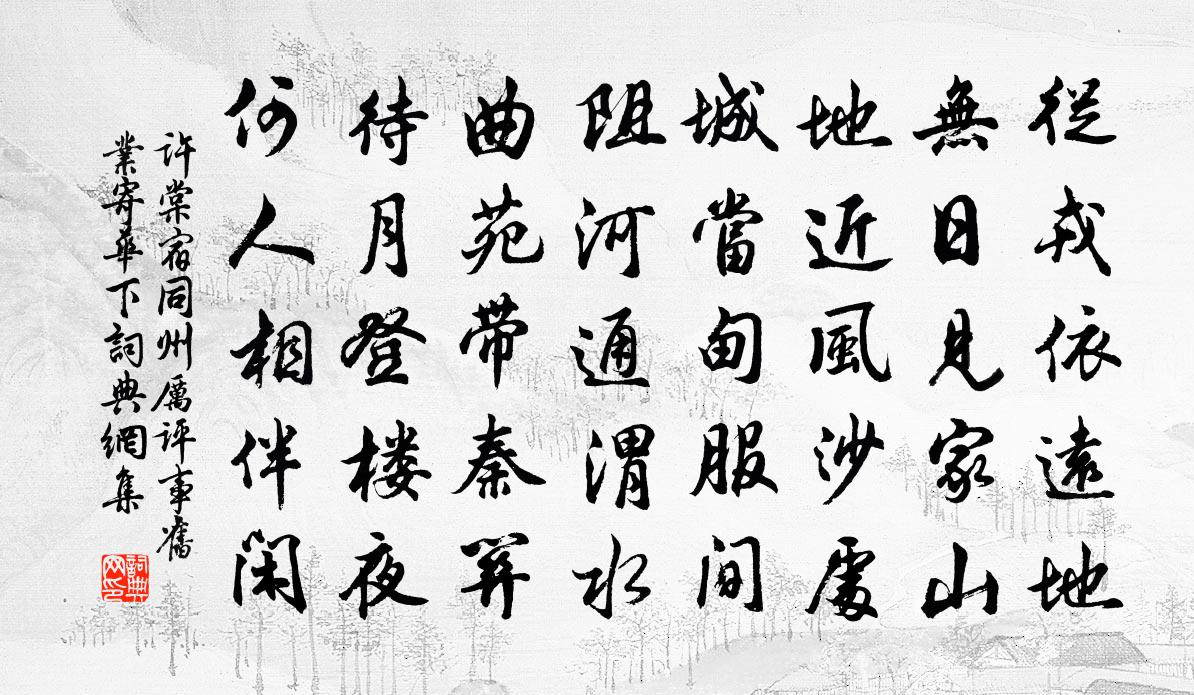 從戎依遠地
無日見家山
地近風沙處
城當甸服间
阻河通渭水
曲苑带秦關
待月登楼夜
何人相伴闲
許棠宿同州厲評事舊
業寄華下詞典網集
詞典网印